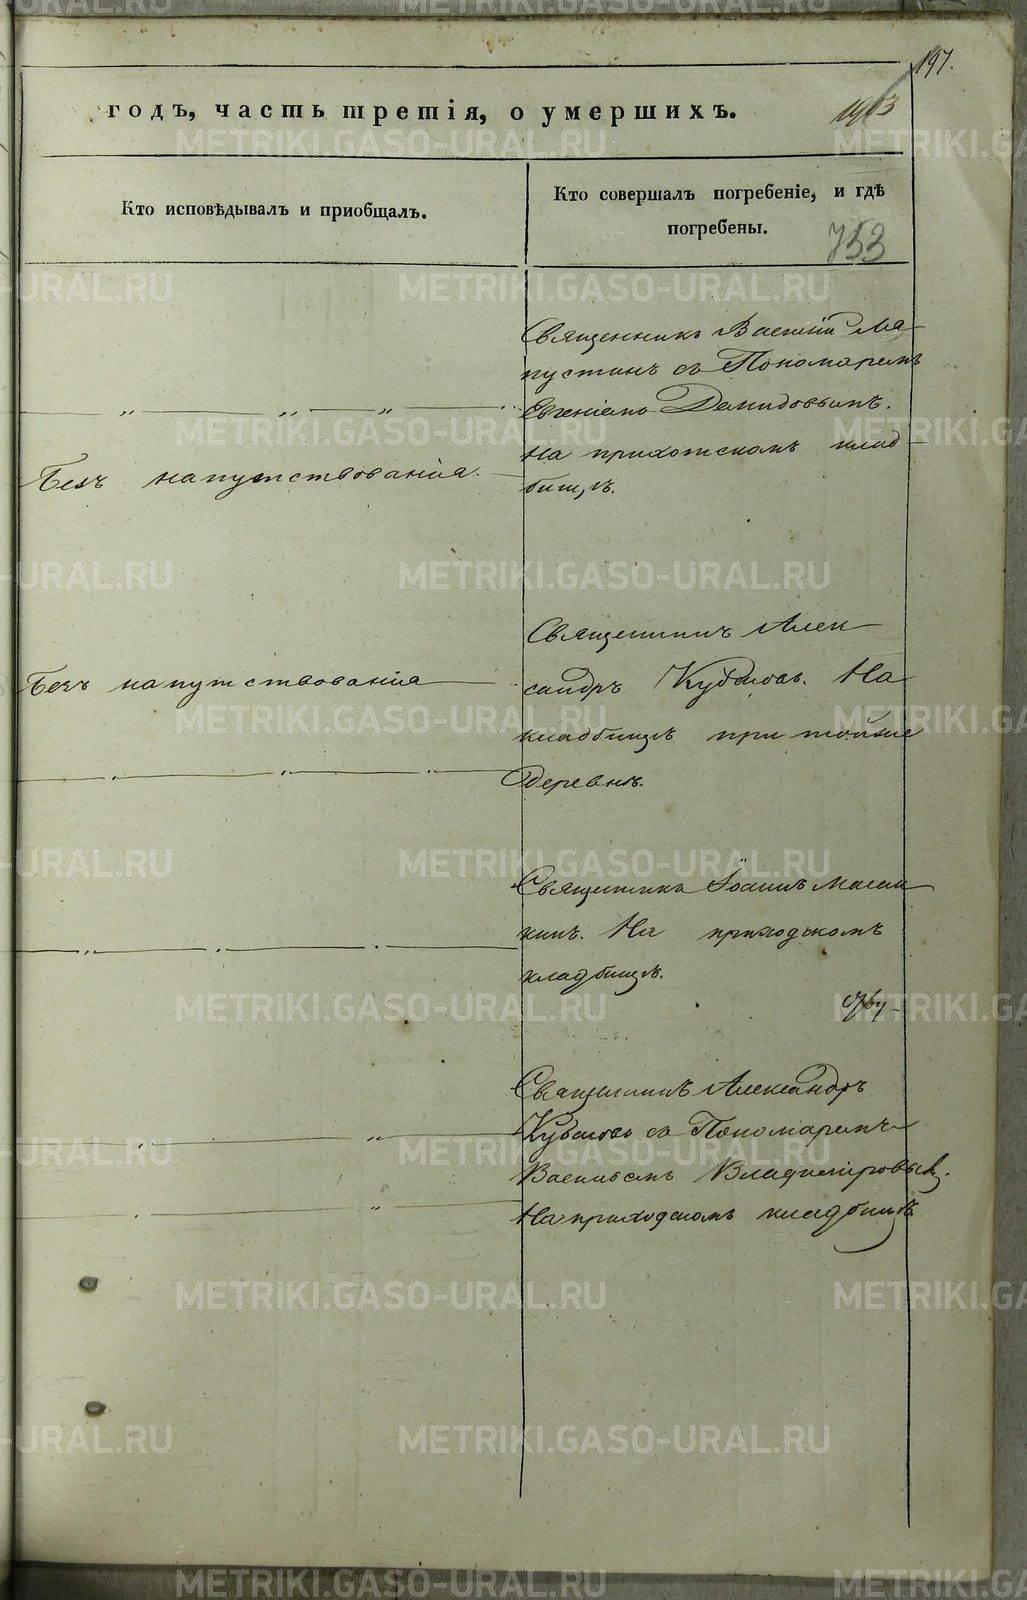 197.
годъ, часть третія, о умершихъ.
Кто исповѣдывалъ и приобщалъ.
Кто совершалъ погребеніе, и гдѣ
погребены.
753
Священникъ Василій Ла-
пустинъ съ Пономаремъ
Евгеніемъ Демидовымъ.
На прихотскомъ клад-
бищѣ.
Безъ напутствованія.
Священникъ Алек-
сандръ Кубасовъ. На
кладбищѣ при той же
деревнѣ.
Безъ напутствованія
Священникъ Іоаннъ
На приходскомъ
кладбищѣ.
Священникъ Александръ
Кубасовъ съ Пономаремъ
Васильемъ Владиміровымъ.
На приходскомъ кладбищѣ.
METRIKI.GASO-URAL.RU